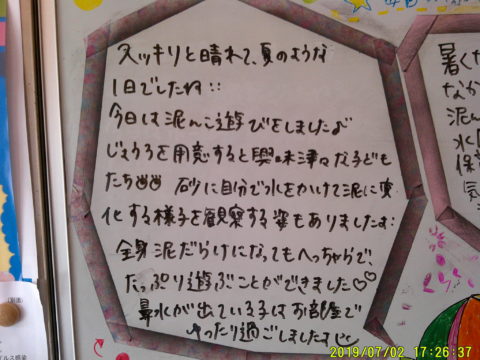 スッキリと晴れて、夏のような
1日でしたね::
今日は泥んこ遊びをしました♪
じょうろを用意すると興味津々な子ども
たち 砂に自分で水をかけて泥に変
化する様子を観察する姿もありましたよ:
全身泥だらけになってもへっちゃらで、
たっぷり遊ぶことができました♡♡
鼻水が出ている子はお部屋で
ゆったり過ごしました
暑く
なか
泥ん
水
保
気
2019/07/02 17:26:37